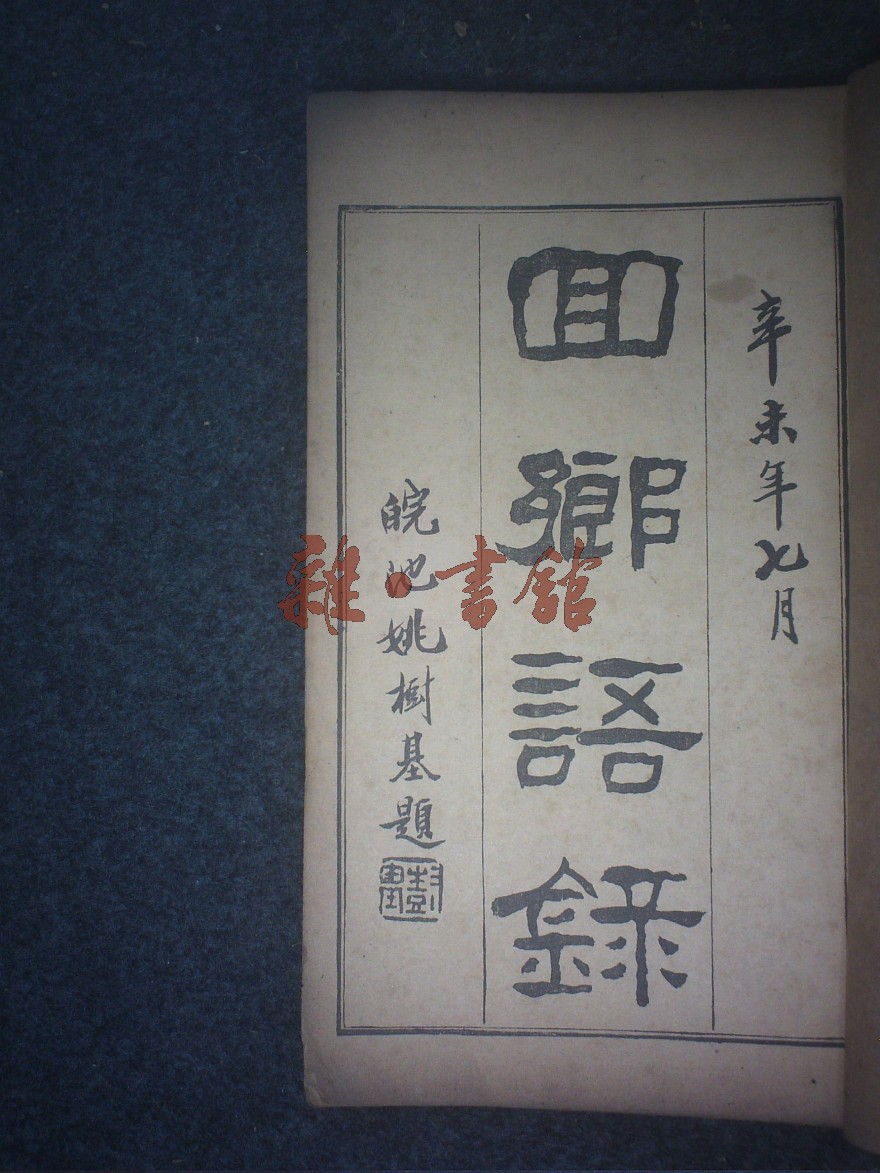 辛未年七月
回鄉語錄
皖北姚樹基題
雜·書館